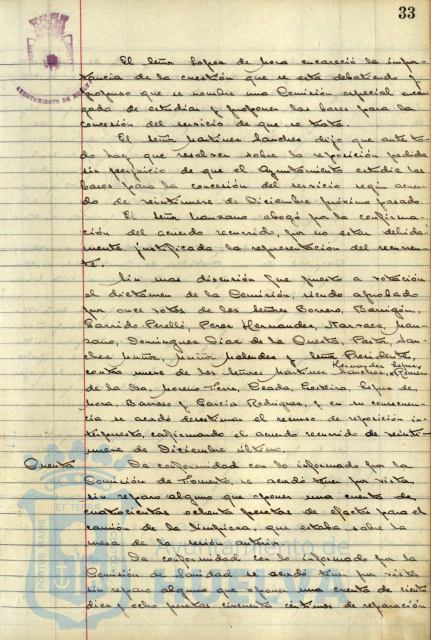 33
El Señor Lopez de Mora encareció la impor-
tancia de la cuestión que se está debatiendo y
propuso que se nombre una Comisión especial encar-
gada de estudiar y proponer las bases para la
concesión del servicio de que se trata.
El Señor Martinez Sanchez dijo que ante to-
do hay que resolver sobre la reposición pedida
sin perjuicio de que el Ayuntamiento estudie las
bases para la concesión del servicio según acuer-
do de veintinueve de Diciembre próximo pasado.
El Señor Manzano abogó por la confirma-
ción del acuerdo recurrido, por no estar debida-
mente justificada la representación del recurren-
te.
Sin mas discusión fue puesto a votación
el dictamen de la Comisión, siendo aprobado
por once votos de los Señores Borrero, Barrigón,
Garrido Perelló, Perez Hernandez, Narvaez, Man-
zano, Dominguez, Diaz de la Cuesta, San-
chez Muñiz, Muñiz y Señor Presidente,
contra nueve de los Señores Martinez Sanchez,
Hernandez
de la Isa, Moreno, Lopez de
Mora, Barroso y Garcia Rodriguez, y en su consecuen-
cia se acordó desestimar el recurso de reposición in-
terpuesto, confirmando el acuerdo recurrido de veinti-
nueve de Diciembre último.
Cuenta De conformidad con lo informado por la
Comisión de Fomento, se acordó tener por vista
sin reparo alguno que oponer una cuenta de
cuatrocientas ochenta pesetas de efectos para el
camión de la limpieza, que estaba sobre la
mesa de la sesión anterior.
De conformidad con lo informado por la
Comisión de Sanidad se acordó tener por vista
sin reparo alguno que oponer una cuenta de ciento
diez y ocho pesetas cincuenta centimos de reparación